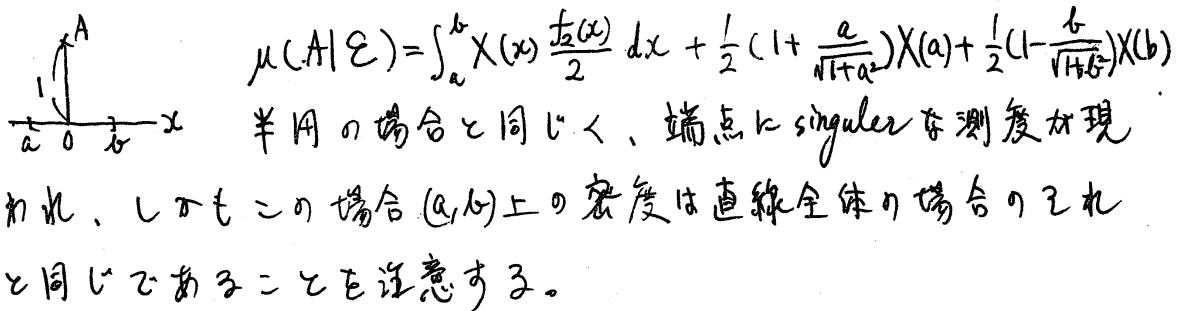 A
1
a 0 b x
μ(A|ℰ)=∫_a^b X(x) f₂(x)/2 dx + 1/2 (1+ a/√(1+a²))X(a)+ 1/2(1- b/√(1+b²))X(b)
半円の場合と同じく、端点に singuler な測度が現
われ、しかもこの場合(a,b)上の密度は直線全体の場合のそれ
と同じであることを注意する。